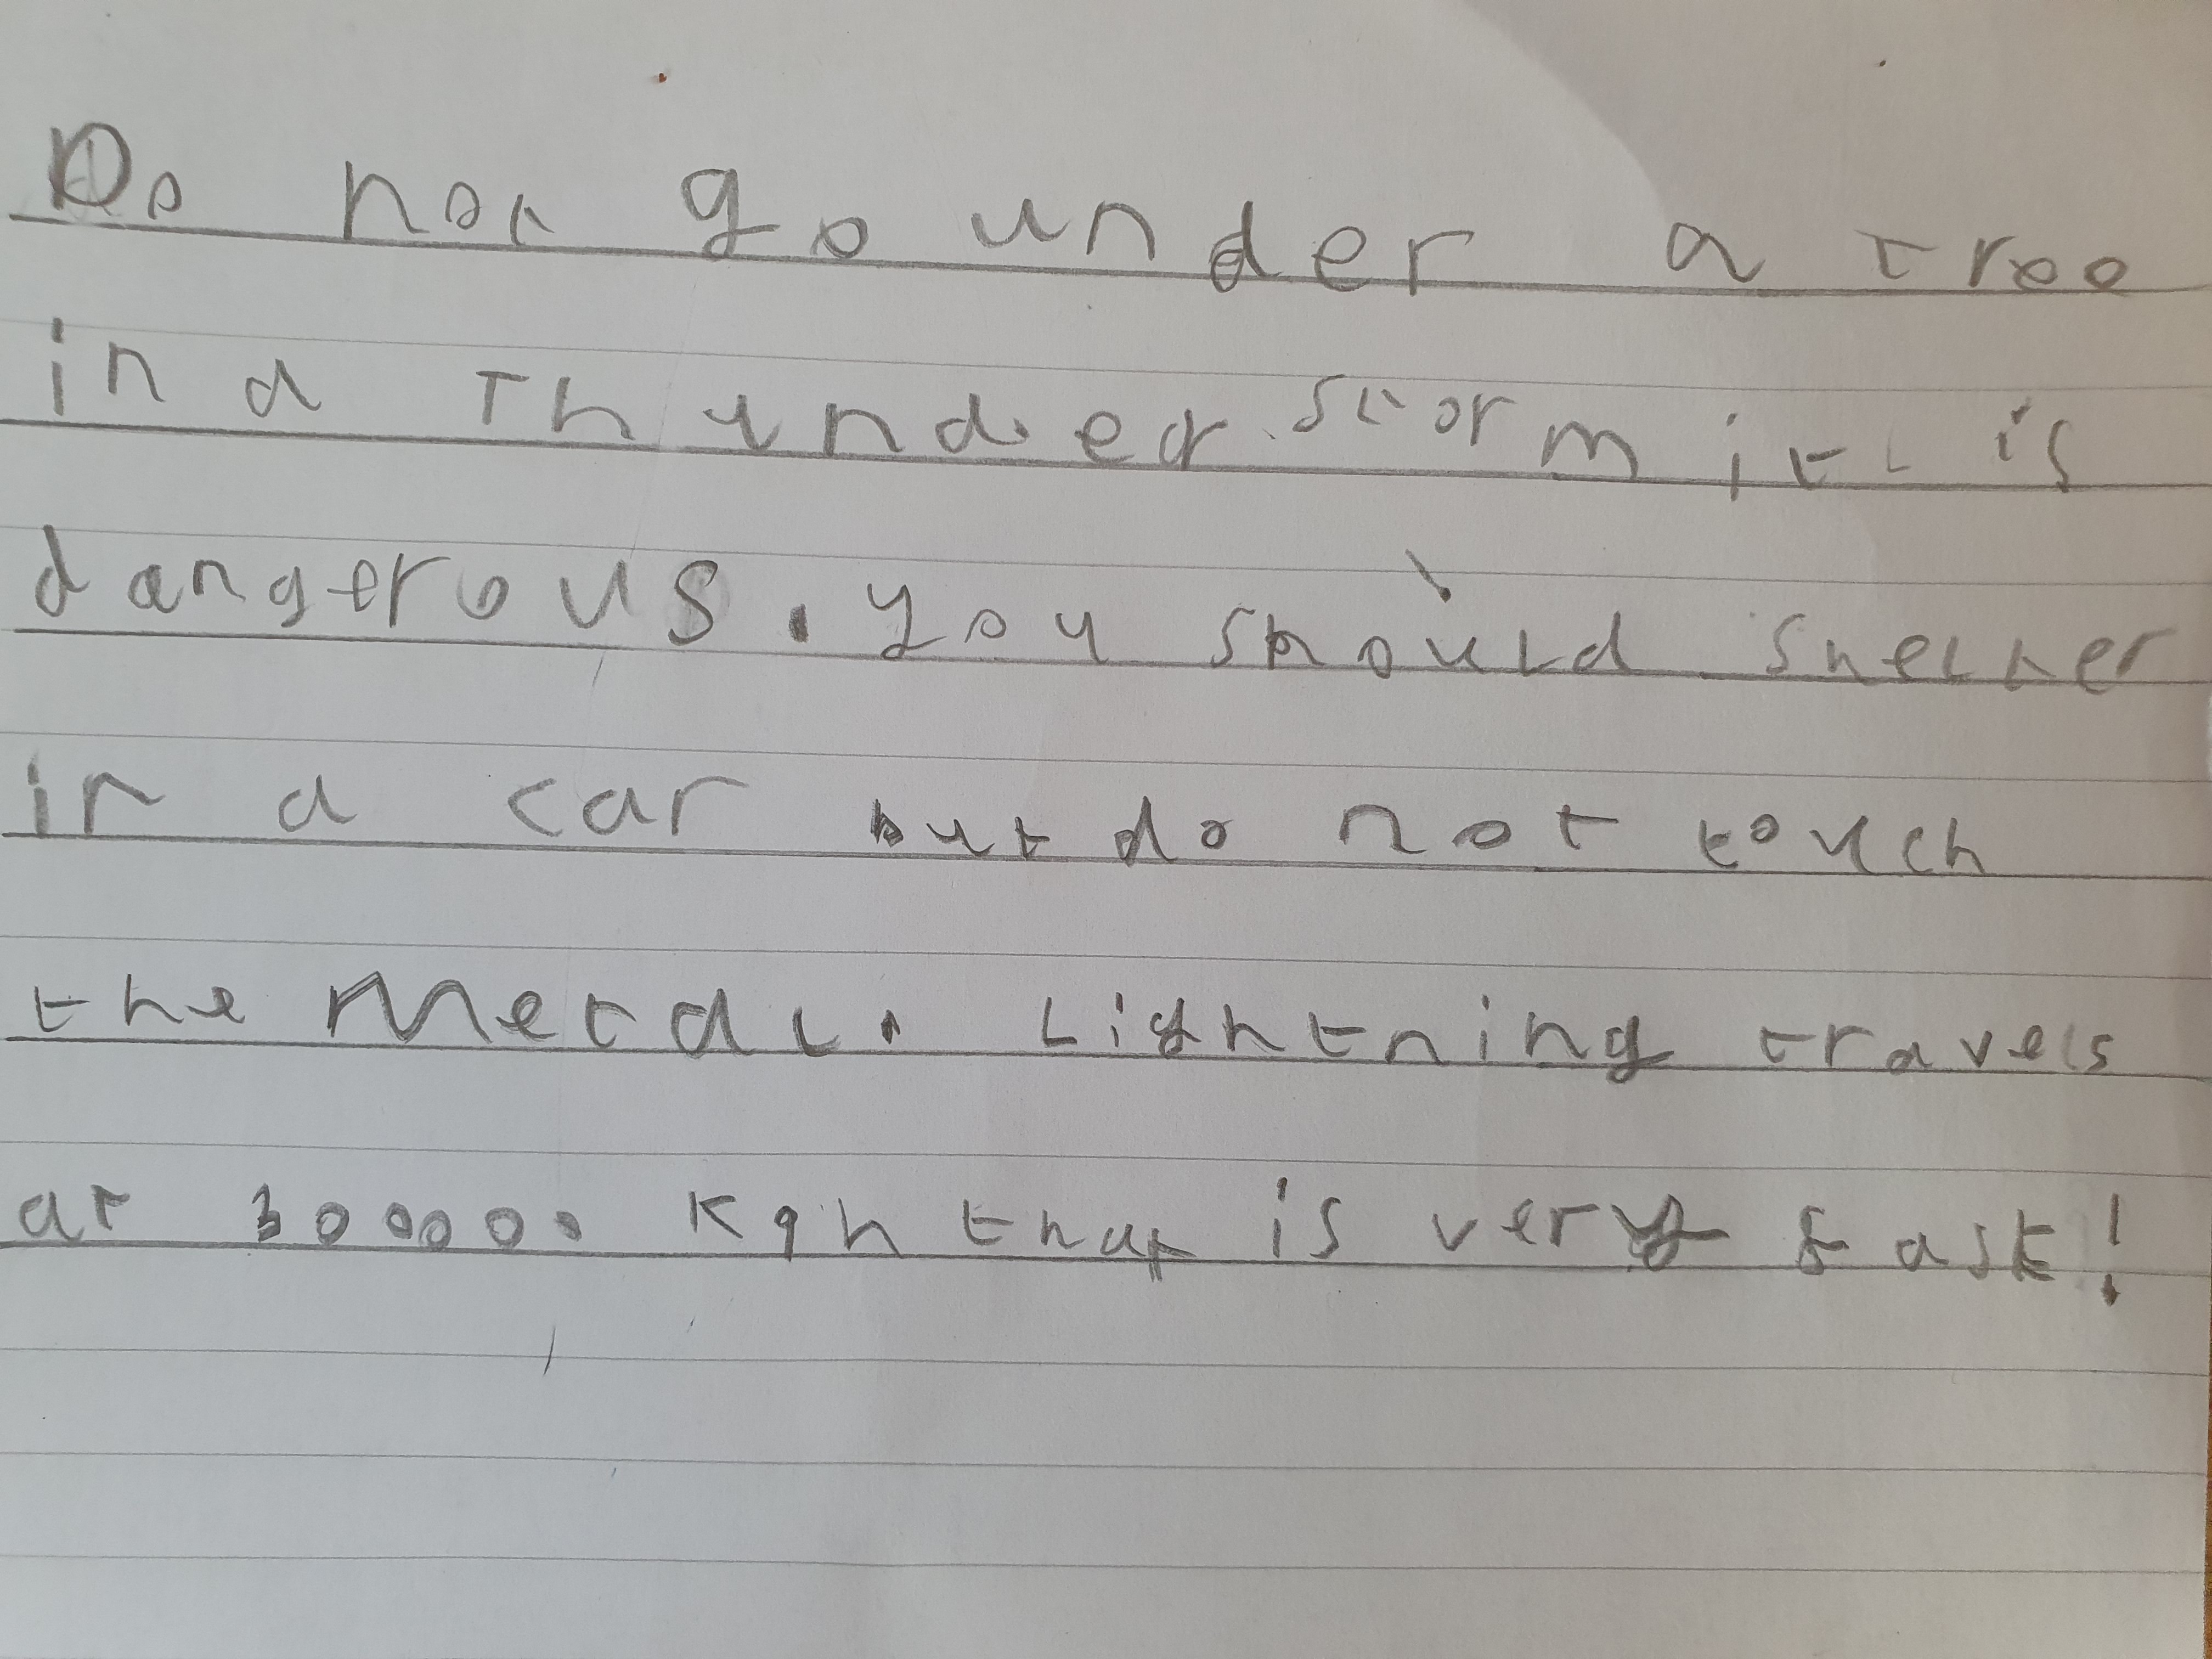 Do not go under a tree
in a Thunder storm it is
dangerous. you should shelter
in a car but do not touch
the Metal. Lightning travels
at 300000 kqh that is very fast!